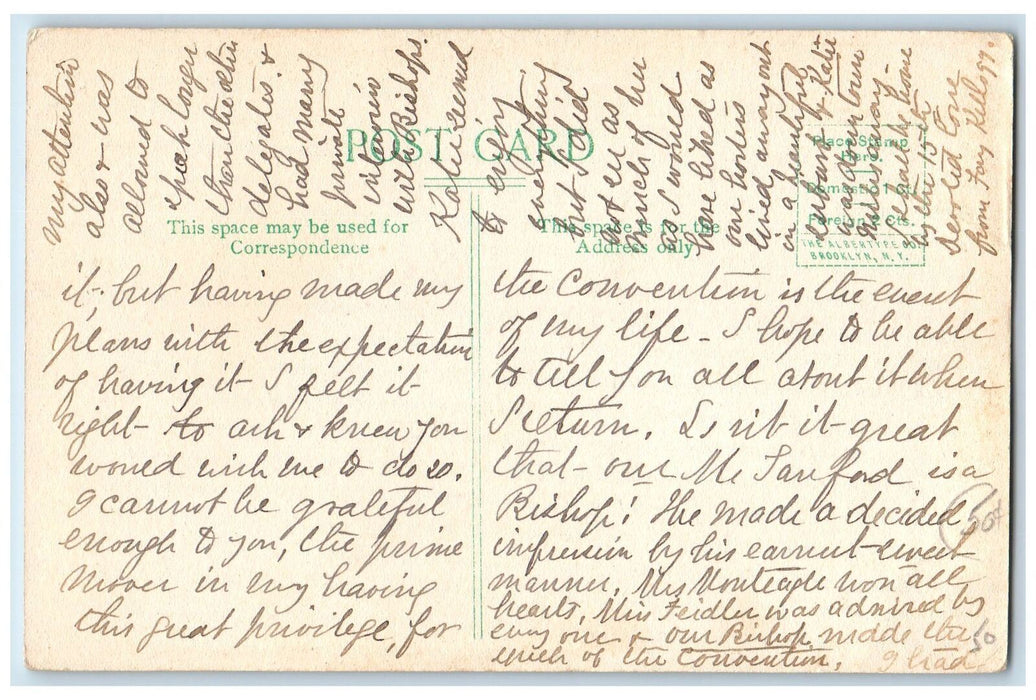 POST CARD
This space may be used for
Correspondence
This space is for the
Address only
Place Stamp
Here.
Domestic 1 Ct.
Foreign 2 Cts.
THE ALBERTYPE CO.
BROOKLYN, N. Y.
it, but having made my
plans with the expectation
of having it I felt it
right to ask & knew you
would wish me to do so.
I cannot be grateful
enough to you, the prime
mover in my having
this great privilege, for
the Convention is the event
of my life - I hope to be able
to tell you all about it when
I return. Isn't it great
that our Mr Sanford is a
Bishop! He made a decided
impression by his earnest sweet
manner, Mrs Monteagle won all
hearts, Miss Feidler was admired by
every one & our Bishop made the
speech of the Convention. I had
50¢
50
my attention
also & was
allowed to
speak longer
than the other
delegates &
had many
private
interviews
with Bishops.
Katie seemed
to enjoy
everything
but I did
not see as
much of her
as I would
have liked as
our hostess
lived away out
in a beautiful
& Katie
was down town
Address my
all the time
by the 15th
devoted love
from Fay Kellogg.